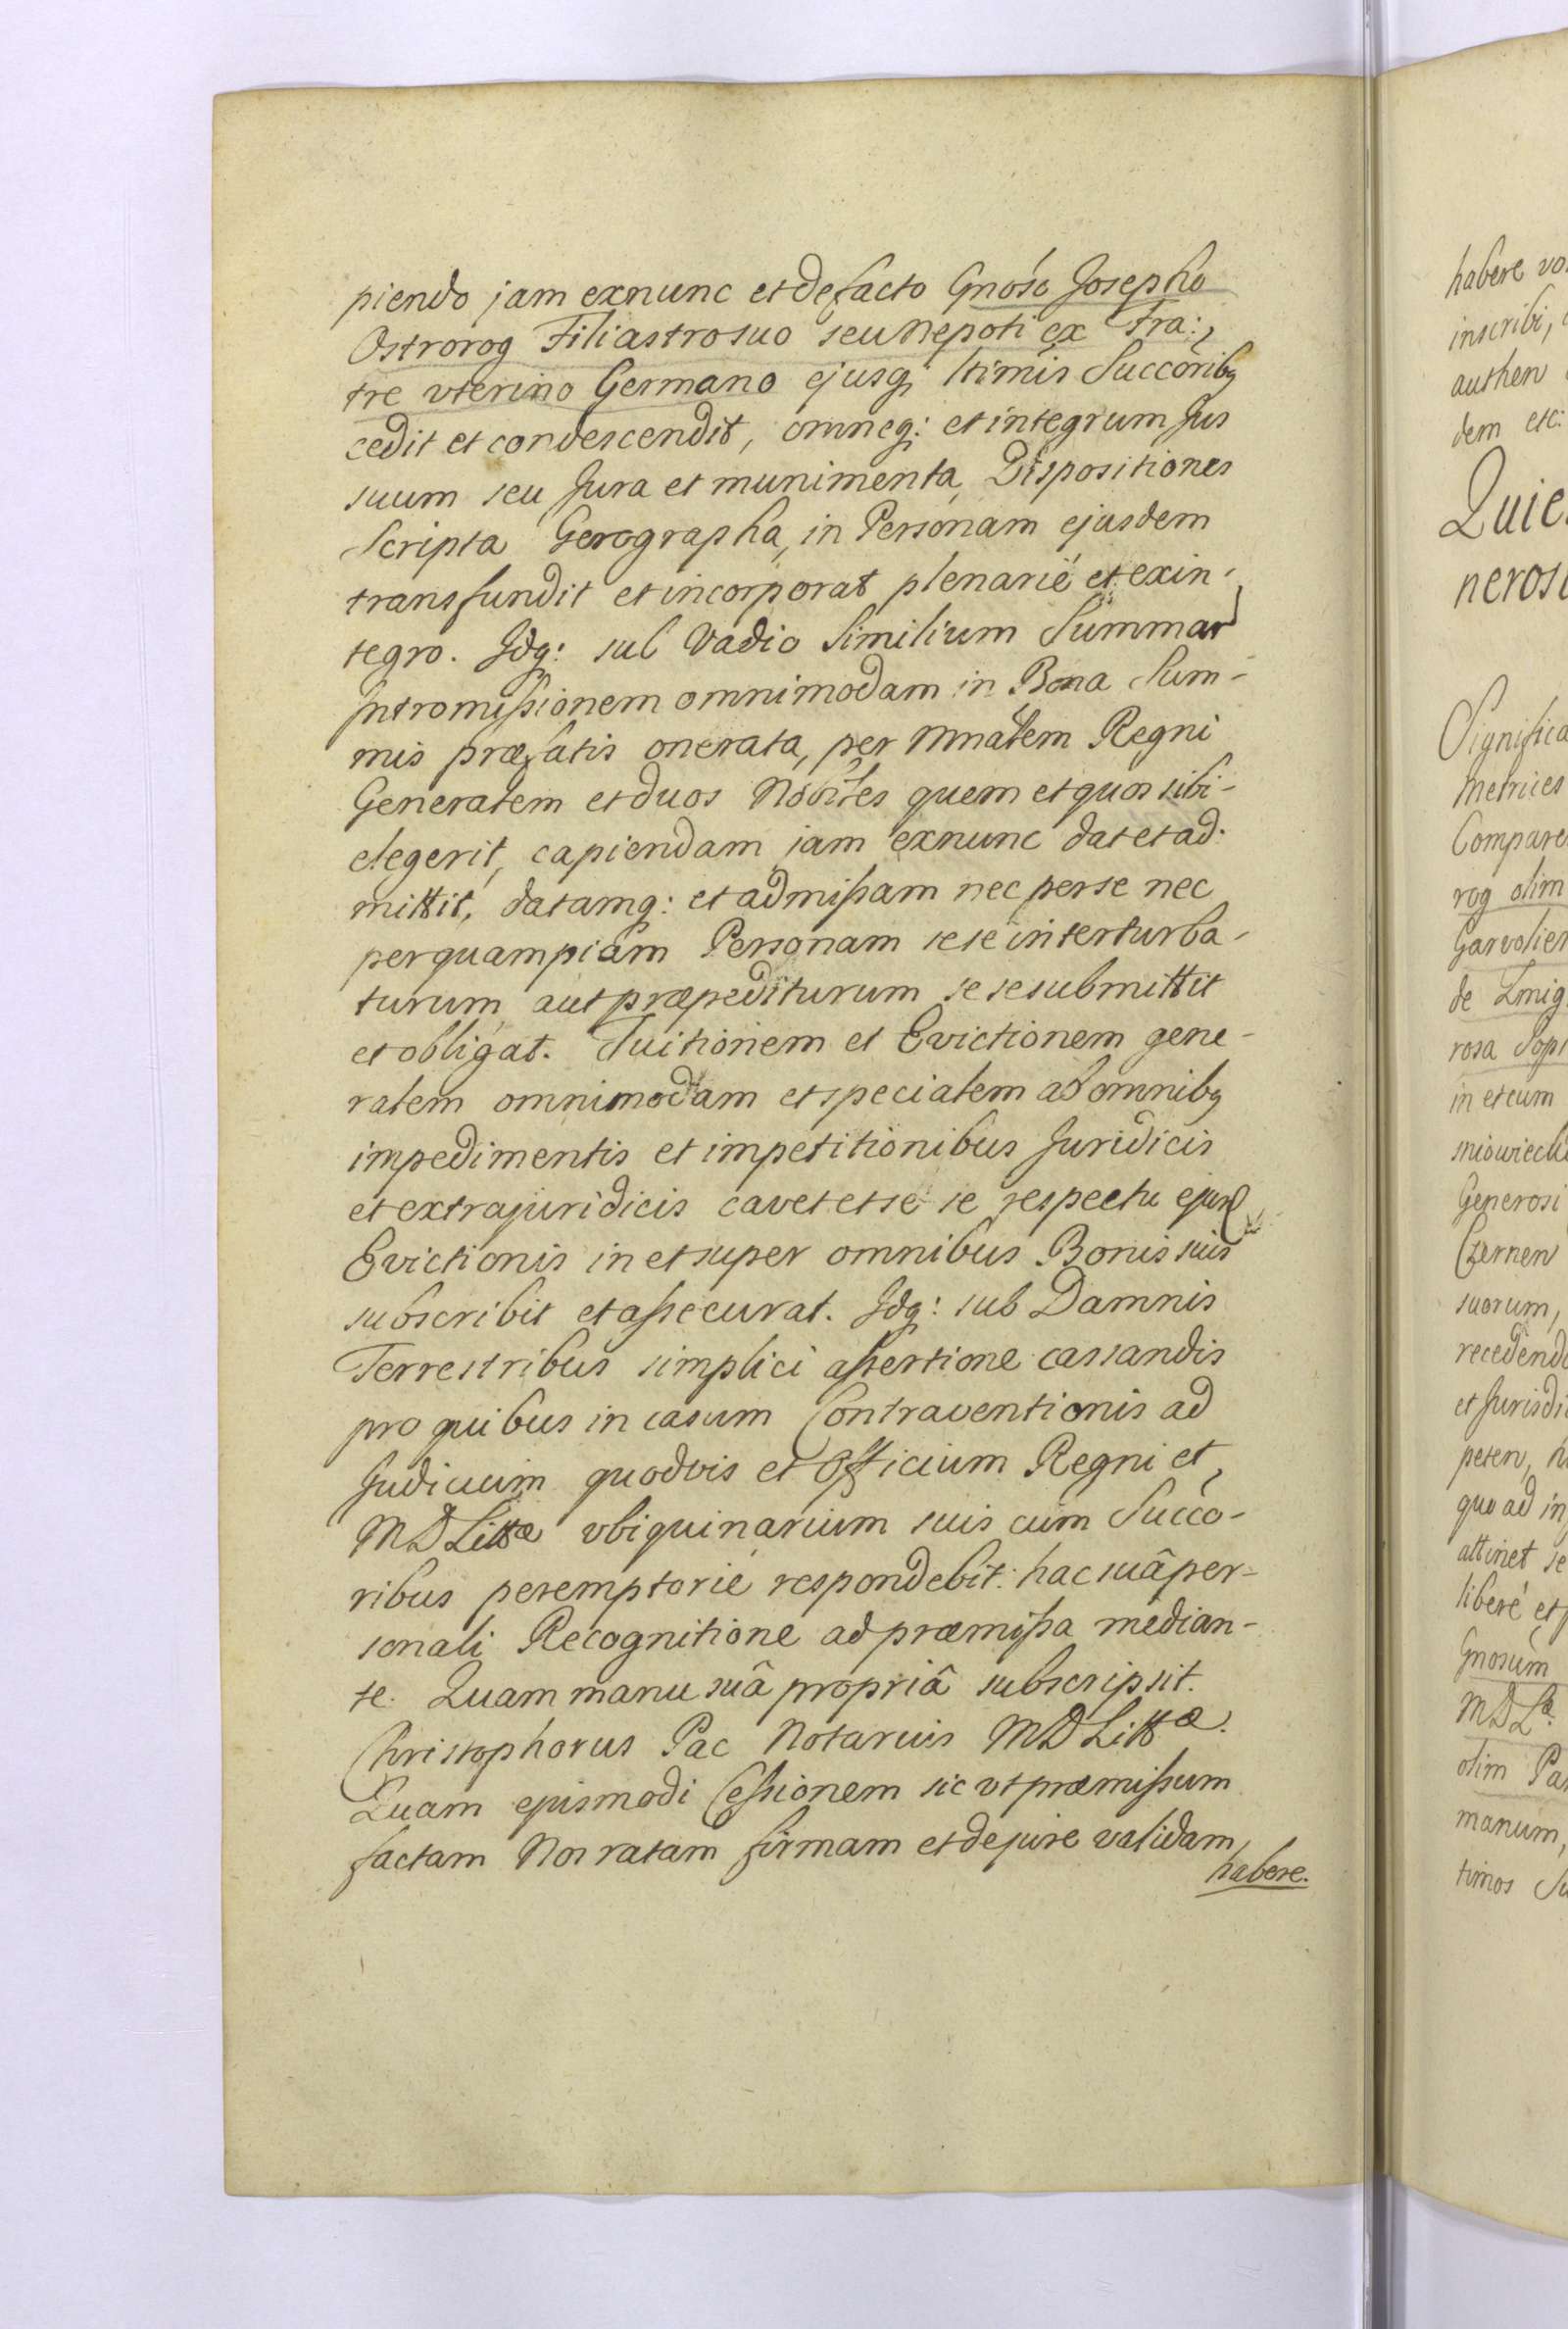 piendo jam exnunc et defacto Gnoso Josepho
Ostrorog Filiastro suo seu Nepoti ex Fra:
tre vterino Germano ejusq; ltimis Succoribq
cedit et condescendit, omneq: et integrum Jus
suum seu Jura et munimenta, Dispositiones
Scripta Gerographa, in Personam ejusdem
transfundit et incorporat plenarié et exin-
tegro. Idq: sub Vadio Similium Summar
Intromissionem omnimodam in Bona Sum-
mis præfatis onerata, per Mnalem Regni
Generalem et duos Nobiles quem et quos sibi-
elegerit, capiendam jam exnunc dat et ad-
mittit, datamq: et admissam nec per se nec
per quampiam Personam sese interturba-
turum aut præpediturum se se submittit
et obligat. Tuitionem et Evictionem gene-
ralem omnimodam et specialem ab omnibq
impedimentis et impetitionibus Juridicis
et extrajuridicis cavet et se se respectu ejusd
Evictionis in et super omnibus Bonis suis
subscribit et assecurat. Idq: sub Damnis
Terrestribus simplici assertione cassandis
pro quibus in casum Contraventionis ad
Judicium quodvis et Officium Regni et
MDLittæ vbiquinarium suis cum Succo-
ribus peremptorié respondebit: hac suâ per-
sonali Recognitione ad præmissa median-
te. Quam manu suâ propriâ subscripsit.
Christophorus Pac Notarius MDLittæ.
Quam ejusmodi Cessionem sic vt præmissum
factam Nos ratam firmam et dejure validam
habere.
habere
inscribi,
authen
dem etc:
Quie
neros
Significa
Metrices
Compare
rog olim
Garvolien
de Zmig
rosa Sop
in et cum
Generosi
Czernen
suorum,
recedend
et Jurisdi
peten,
quo ad in
attinet se
liberé et
Gnosum
MDLæ
olim Pa
manum,
timos Su